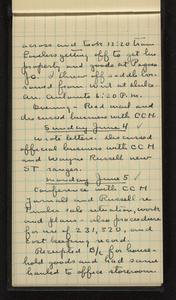 across and took 12:20 train
Enders getting off to get his
property and goods at Pagosa
Jc. I threw off saddle
round from
Arr. Antonito 6:20 P.M.
Evening - Read mail and
discussed business with CCH.
Sunday June 4
Wrote letters. Discussed
official business with CCH
and Wayne Russell new
ST. ranger.
Monday June 5
Conference with CCH
Jarnall and Russell re
Timber sale relation, work
and plans - also procedure
for use of 231, 520, and
cost keeping record.
Receipted B/L for house-
hold goods and had same
hauled to office storeroom.